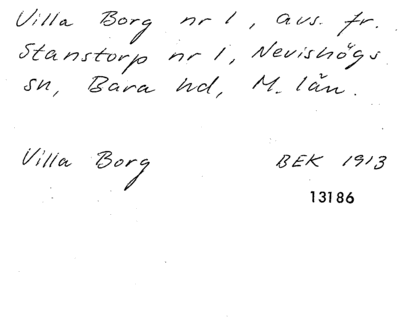 Villa Borg nr 1, avs. fr.
Stanstorp nr 1, Nevishögs
sn, Bara hd, M. län.
Villa Borg BEK 1913
13186